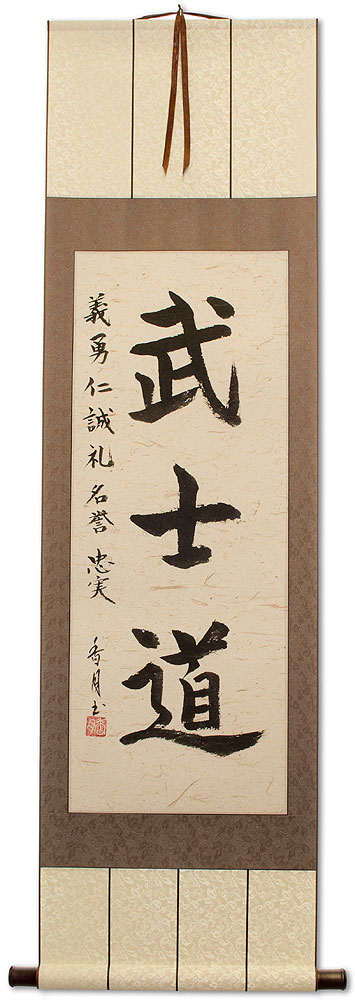 武士道
義勇仁誠礼名誉忠実
香月书